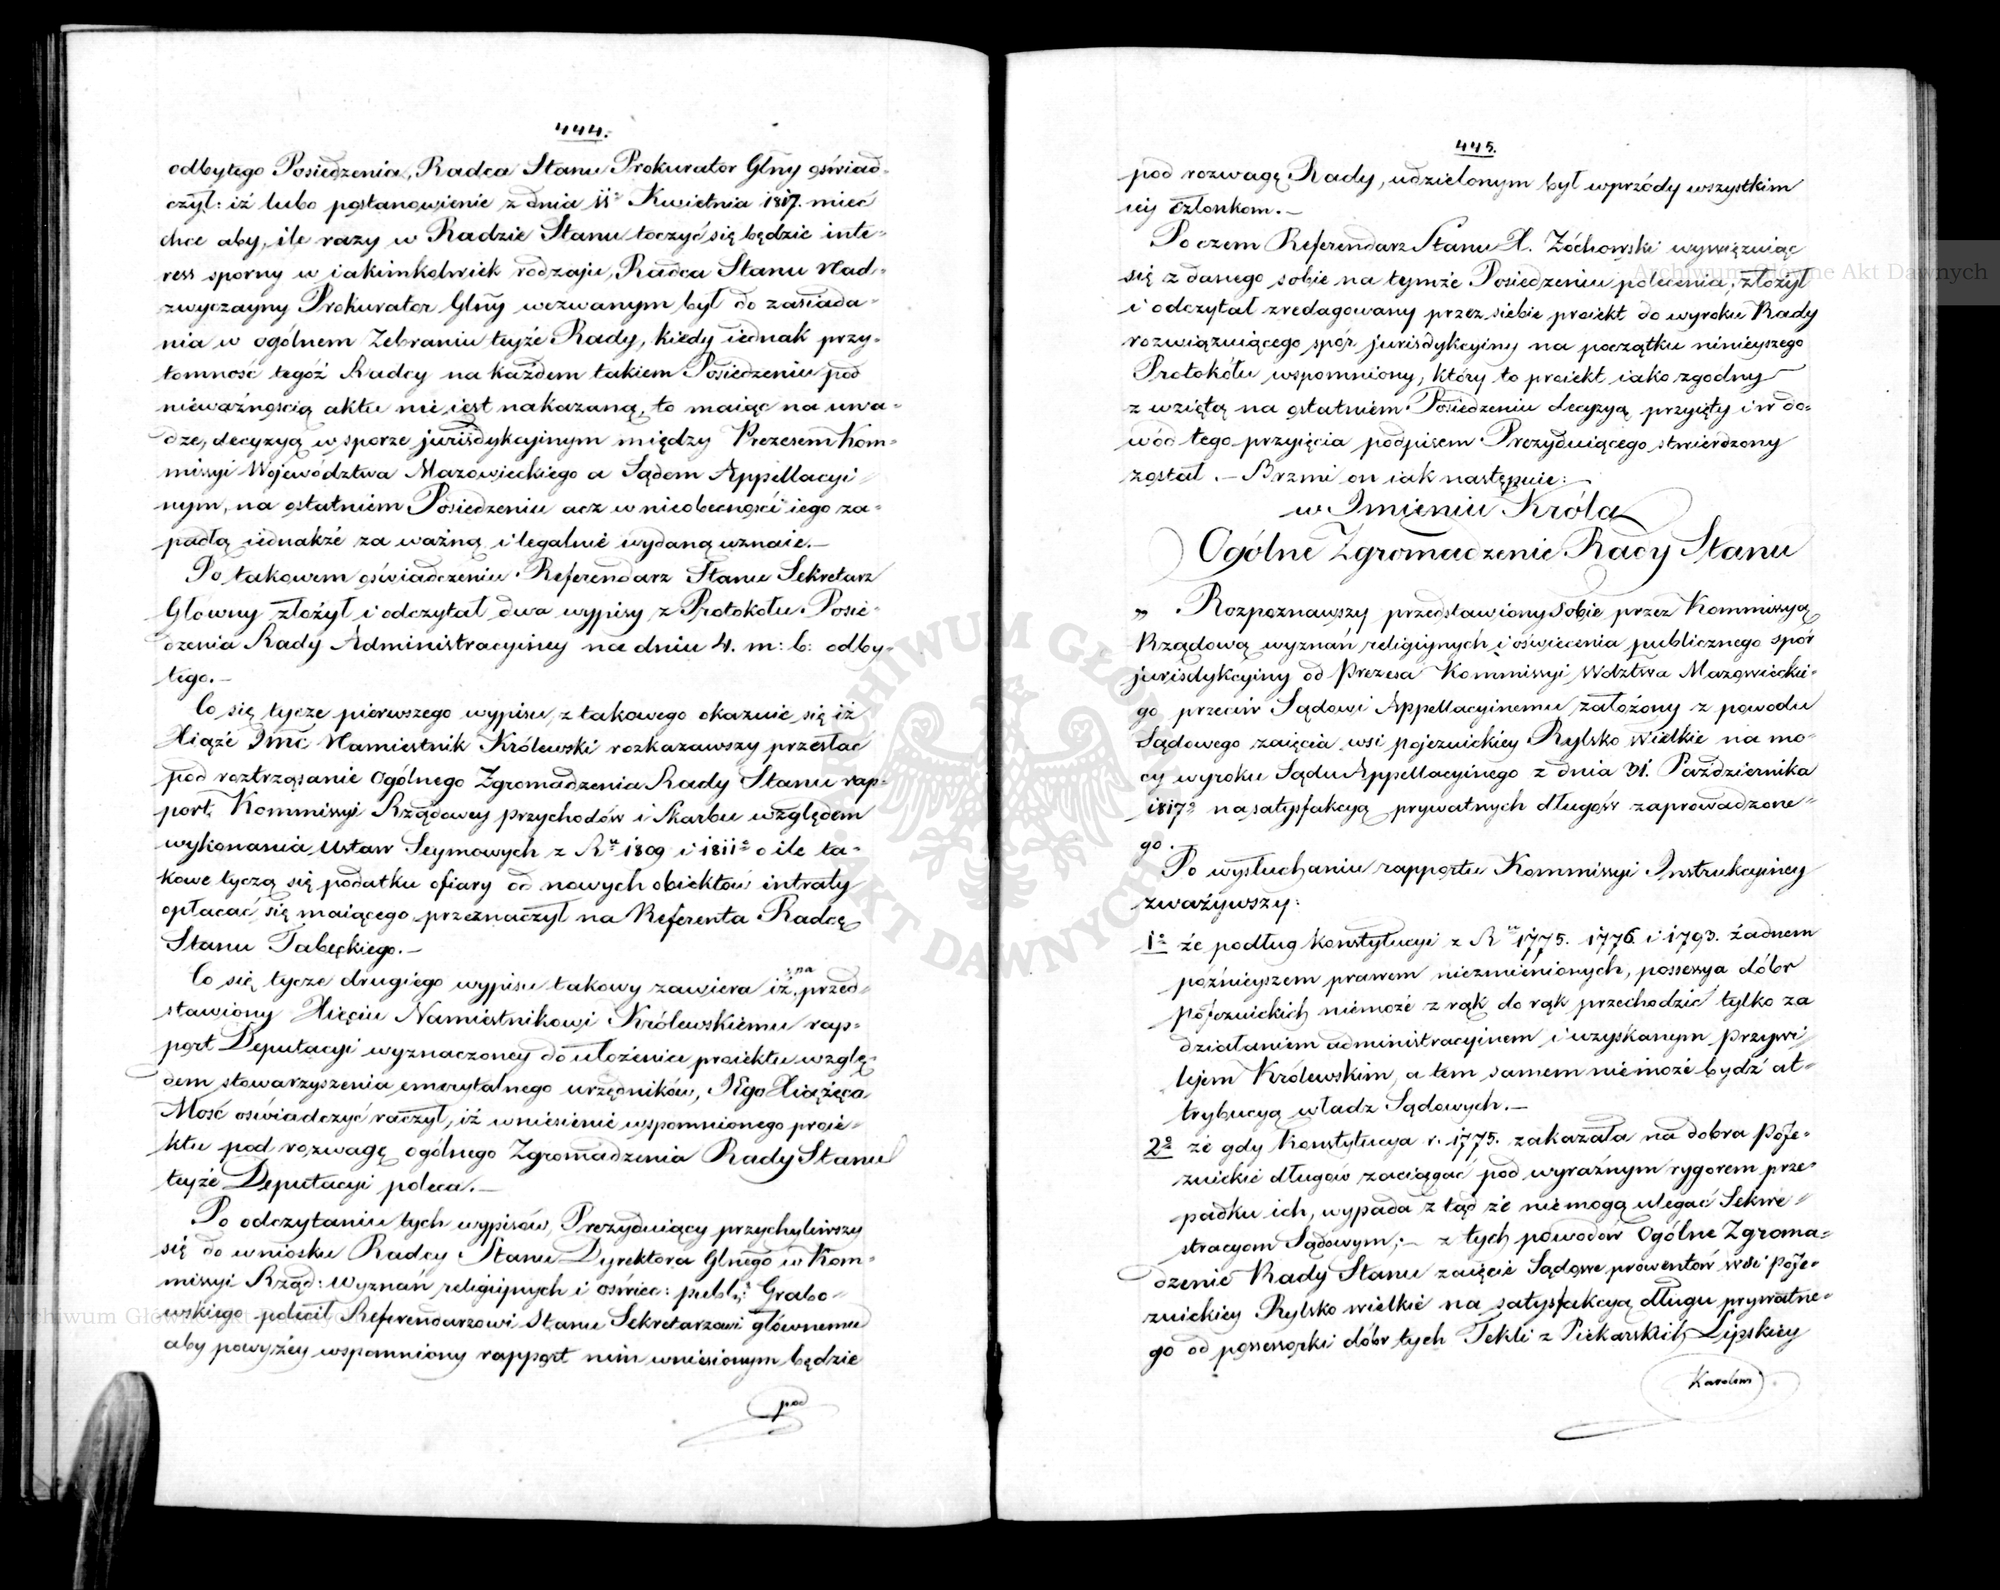 444.
odbytego Posiedzenia, Radca Stanu Prokurator Glny oświad-
czył: iż lubo postanowienie z dnia 11º Kwietnia 1817. mieć
chce aby, ile razy w Radzie Stanu toczyć się będzie inte-
ress sporny w iakimkolwiek rodzaju, Radca Stanu Nad-
zwyczayny Prokurator Glny wezwanym był do zasiada-
nia w ogólnem Zebraniu teyże Rady, kiedy iednak przy-
tomność tegóż Radcy na każdem takiem Posiedzeniu pod
nieważnością aktu nie iest nakazaną, to maiąc na uwa-
dze, decyzyą w sporze jurisdykcyinym między Prezesem Kom-
missyi Województwa Mazowieckiego a Sądem Appellacyi-
nym, na ostatniem Posiedzeniu acz w nieobecności iego za-
padłą iednakże za ważną i legalnie wydaną uznaie.—
Po takowem oświadczeniu Referendarz Stanu Sekretarz
Glowny złożył i odczytał dwa wypisy z Protokołu Posie-
dzenia Rady Administracyiney na dniu 4. m: b: odby-
tego.—
Co się tycze pierwszego wypisu, z takowego okazuie się iż
Xiąże Jmć Namiestnik Królewski rozkazawszy przesłać
pod roztrząsanie Ogólnego Zgromadzenia Rady Stanu rap-
port Kommissyi Rządowey przychodów i Skarbu względem
wykonania Ustaw Seymowych z Ru 1809 i 1811º o ile ta-
kowe tyczą się podatku ofiary od nowych obiektów intraty
opłacać się maiącego przeznaczył na Referenta Radcę
Stanu Tabęckiego.—
Co się tycze drugiego wypisu takowy zawiera iż na przed-
stawiony Xięciu Namiestnikowi Królewskiemu rap-
port Deputacyi wyznaczoney do ułożenia proiektu wzglę-
dem stowarzyszenia emerytalnego urzędników, JEgo Xiążęca
Mość oświadczyć raczył, iż wniesienie wspomnionego proie-
ktu pod rozwagę ogólnego Zgromadzenia Rady Stanu
teyże Deputacyi poleca.—
Po odczytaniu tych wypisów, Prezyduiący przychyliwszy
się do wniosku Radcy Stanu Dyrektora Glnego w Kom-
missyi Rząd: Wyznań religiynych i oświec: publ: Grabo-
wskiego polecił Referendarzowi Stanu Sekretarzowi głównemu
aby powyżéy wspomniony rapport nim wniesionym będzie
pod
445.
pod rozwagę Rady, udzielonym był wprzódy wszystkim
iey członkom.—
Poczem Referendarz Stanu X. Żóchowski wywięzuiąc
się z danego sobie na tymże Posiedzeniu polecenia, złożył
i odczytał zredagowany przez siebie proiekt do wyroku Rady
rozwiązuiącego spór jurisdykcyiny na początku ninieyszego
Protokółu wspomniony, który to proiekt iako zgodny
z wziętą na ostatniem Posiedzeniu decyzyą przyięty i w do-
wód tego przyięcia podpisem Prezyduiącego stwierdzony
został.— Brzmi on iak następuie:
w Imieniu Króla
Ogólne Zgromadzenie Rady Stanu
„ Rozpoznawszy przedstawiony Sobie przez Kommissyą
Rządową wyznań religiynych i oświecenia publicznego spór
jurisdykcyiny od Prezesa Kommissyi Wdztwa Mazowieckie-
go przeciw Sądowi Appellacyinemu założony z powodu
Sądowego zaięcia wsi pojezuickiey Rylsko Wielkie na mo-
cy wyroku Sądu Appellacyinego z dnia 31. Października
1817º na satysfakcyą prywatnych długów zaprowadzone-
go.
Po wysłuchaniu rapportu Kommissyi Instrukcyiney
zważywszy:
1º że podług Konstytucyi z Ru 1775. 1776. i 1793. żadnem
poźnieyszem prawem niezmienionych, possessya dóbr
pójezuickich niemoże z rąk do rąk przechodzić tylko za
działaniem administracyinem i uzyskanym przywi-
lejem Królewskim, a tem samem niemoże bydź at-
trybucyą władz Sądowych.—
2º że gdy Konstytucya r. 1775. zakazała na dobra póje-
zuickie długów zaciągać pod wyraźnym rygorem prze-
padku ich, wypada z tąd że niemogą ulegać Sekwe-
stracyom Sądowym;— z tych powodów Ogólne Zgroma-
dzenie Rady Stanu zaięcie Sądowe prowentów wsi póje-
zuickiey Rylsko wielkie na satysfakcyą długu prywatne-
go od possessorki dóbr tych Tekli z Piekarskich Lipskiey
Karolowi
Archiwum Główne Akt Dawnych
ARCHIWUM GŁÓWNE AKT DAWNYCH
Archiwum Główne Akt Dawnych